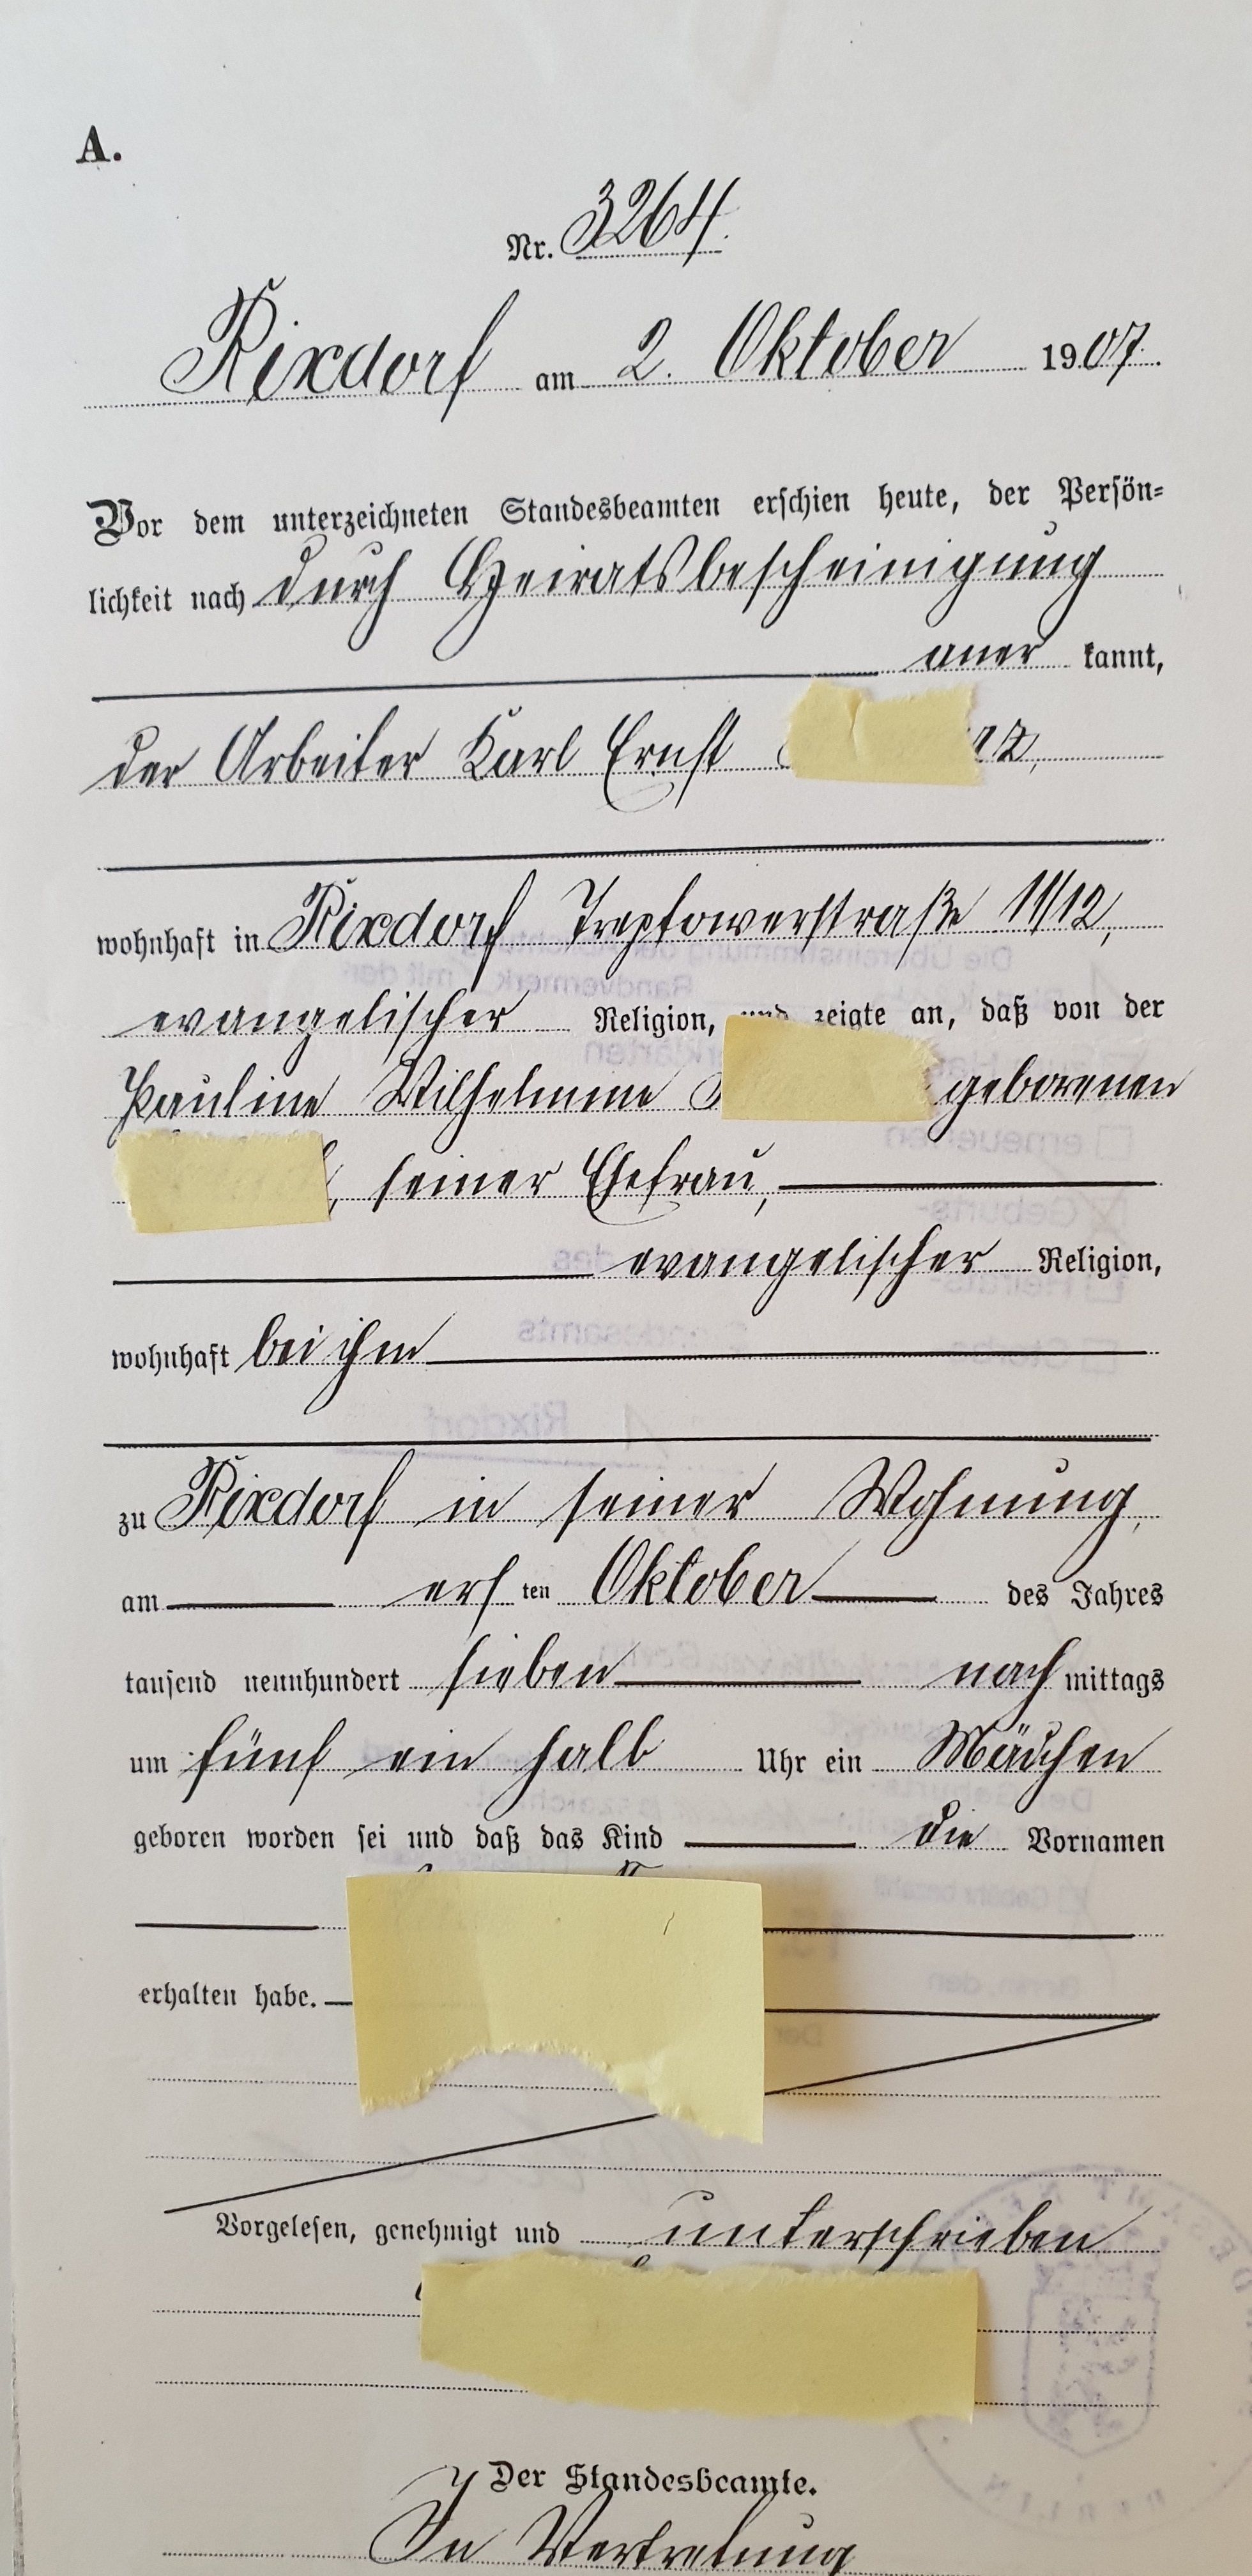 A.
Nr. 3264.
Rixdorf am 2. Oktober 1907.
Vor dem unterzeichneten Standesbeamten erschien heute, der Persön=
lichkeit nach durch Heiratsbescheinigung
aner kannt,
der Arbeiter Karl Ernst
wohnhaft in Rixdorf Treptowerstraße 11/12,
evangelischer Religion, und zeigte an, daß von der
Pauline Wilhelmine geborenen
seiner Ehefrau,
evangelischer Religion,
wohnhaft bei ihm
zu Rixdorf in seiner Wohnung,
am ersten Oktober des Jahres
tausend neunhundert sieben nachmittags
um fünf ein halb Uhr ein Mädchen
geboren worden sei und daß das Kind die Vornamen
erhalten habe.
Vorgelesen, genehmigt und unterschrieben
Der Standesbeamte.
In Vertretung